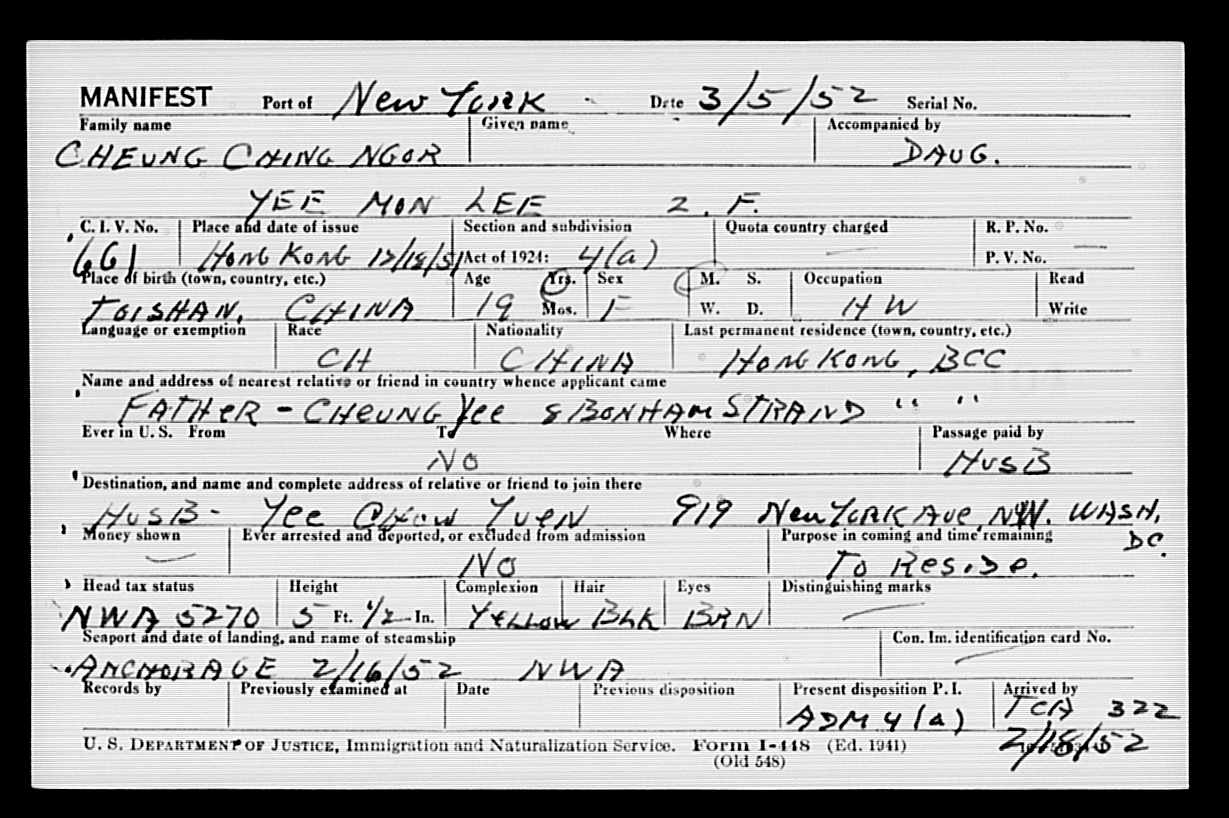 MANIFEST Port of New York Date 3/5/52 Serial No.
Family name Given name Accompanied by
CHEUNG CHING NGOR DAUG.
YEE MON LEE 2. F.
C. I. V. No. Place and date of issue Section and subdivision Quota country charged R. P. No.
661 HONG KONG 12/18/51 Act of 1924: 4(a) P. V. No.
Place of birth (town, country, etc.) Age Yrs. Sex M. S. Occupation Read
TOISHAN, CHINA 19 Mos. F W. D. HW Write
Language or exemption Race Nationality Last permanent residence (town, country, etc.)
CH CHINA HONG KONG, BCC
Name and address of nearest relative or friend in country whence applicant came
FATHER - CHEUNG Yee 8 BONHAM STRAND " "
Ever in U. S. From To Where Passage paid by
NO HUSB
Destination, and name and complete address of relative or friend to join there
HUSB- Yee CHOW YUEN 919 New York Ave, NW. WASH, DC.
Money shown Ever arrested and deported, or excluded from admission Purpose in coming and time remaining
NO To Reside.
Head tax status Height Complexion Hair Eyes Distinguishing marks
NWA 5270 5 Ft. 1/2 In. YELLOW BLK BRN
Seaport and date of landing, and name of steamship Con. Im. identification card No.
ANCHORAGE 2/16/52 NWA
Records by Previously examined at Date Previous disposition Present disposition P. I. Arrived by
ADM 4(a) TCA 322
U. S. DEPARTMENT OF JUSTICE, Immigration and Naturalization Service. Form I-448 (Ed. 1941) 2/18/52
(Old 548)